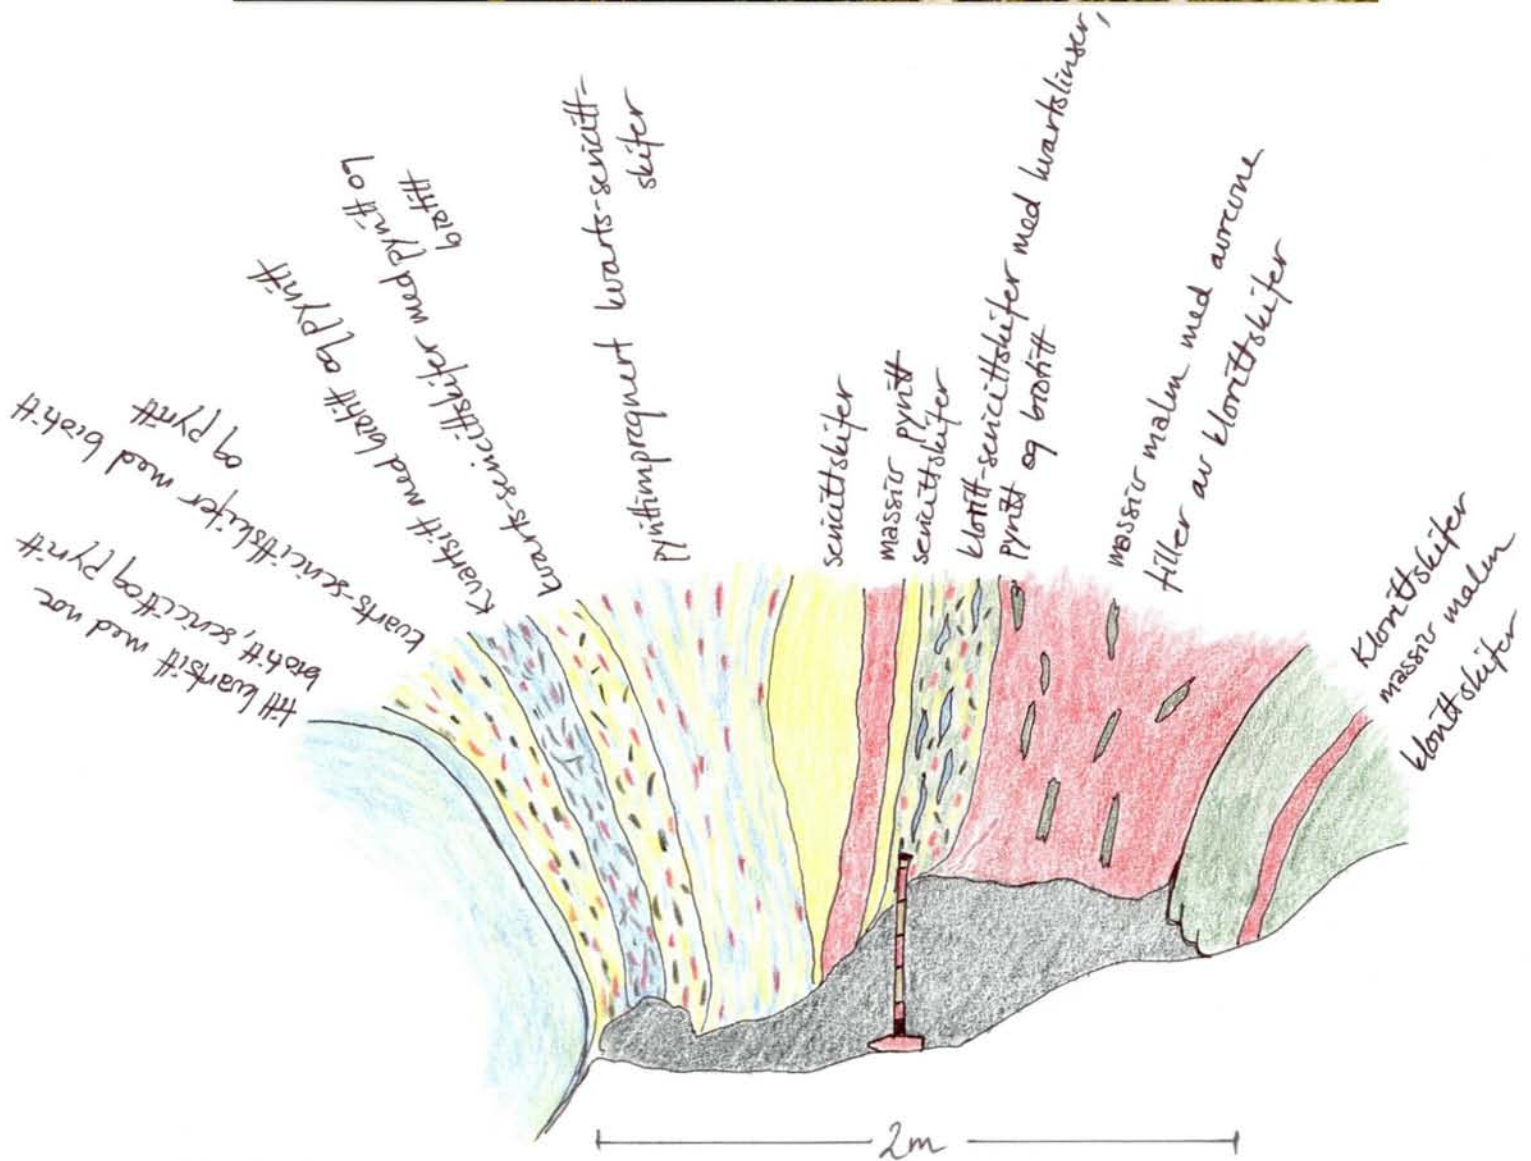 till kvartsitt med noe
biotitt, sericitt og pyritt
kvarts-sericittskifer med biotitt
og pyritt
Kvartsitt med biotitt og pyritt
kvarts-sericittskifer med pyritt og
biotitt
pyrittimpregnert kvarts-sericitt-
skifer
sericittskifer
massiv pyritt
sericittskifer
kloritt-sericittskifer med kvartslinser,
pyritt og biotitt
massiv malm med avrevne
filler av klorittskifer
Klorittskifer
massiv malm
klorittskifer
2m